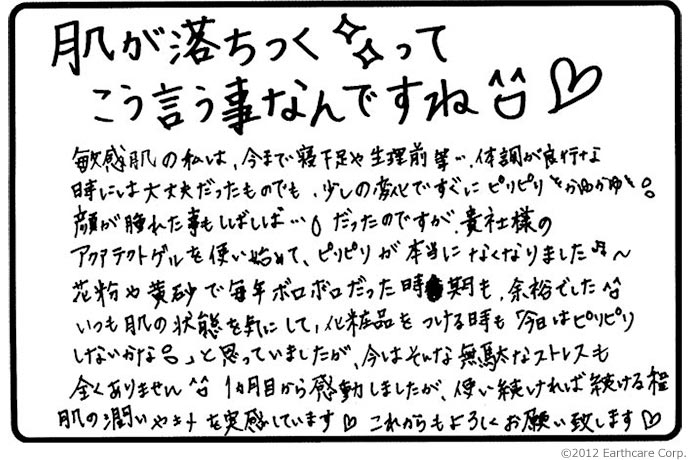 肌が落ちつくって
こう言う事なんですね
敏感肌の私は、今まで寝不足や生理前等…体調が良行な
時には大丈夫だったものでも、少しの変化ですぐにピリピリかゆかゆ
顔が腫れた事もしばしば…だったのですが、貴社様の
アクアテクトゲルを使い始めて、ピリピリが本当になくなりました♫〜
花粉や黄砂で毎年ボロボロだった時期も、余裕でした
いつも肌の状態を気にして、化粧品をつける時も「今日はピリピリ
しないかな」と思っていましたが、今はそんな無駄なストレスも
全くありません 1ヶ月目から感動しましたが、使い続ければ続ける程
肌の潤いやキメを実感しています♡ これからもよろしくお願い致します♡
©2012 Earthcare Corp.